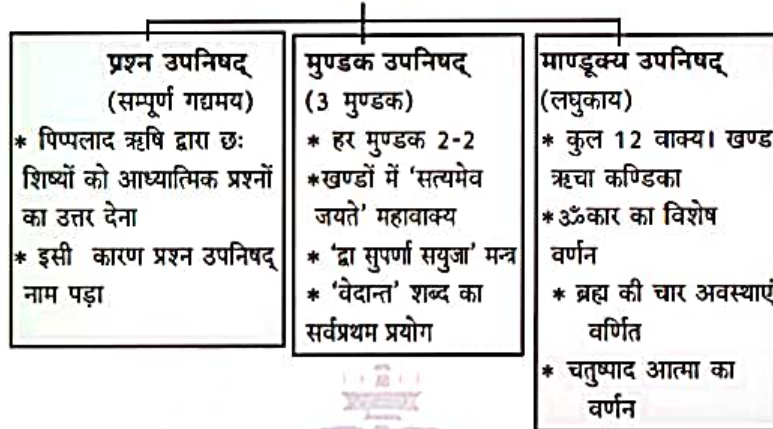 प्रश्न उपनिषद्
(सम्पूर्ण गद्यमय)
* पिप्पलाद ऋषि द्वारा छः
शिष्यों को आध्यात्मिक प्रश्नों
का उत्तर देना
* इसी कारण प्रश्न उपनिषद्
नाम पड़ा
मुण्डक उपनिषद्
(3 मुण्डक)
* हर मुण्डक 2-2
*खण्डों में 'सत्यमेव
जयते' महावाक्य
* 'द्वा सुपर्णा सयुजा' मन्त्र
* 'वेदान्त' शब्द का
सर्वप्रथम प्रयोग
माण्डूक्य उपनिषद्
(लघुकाय)
* कुल 12 वाक्य। खण्ड
ऋचा कण्डिका
*ॐकार का विशेष
वर्णन
* ब्रह्म की चार अवस्थाएं
वर्णित
* चतुष्पाद आत्मा का
वर्णन